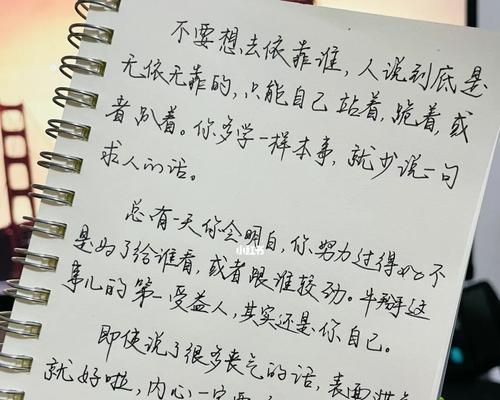 不要想去依靠谁，人说到底是
无依无靠的，只能自己站着，跪着，或
者趴着。你多学一样本事，就少说一句
求人的话。
小红书
总有一天你会明白，你努力过得好不
是为了给谁看，或者跟谁较劲。牛掰这
事儿的第一受益人，其实还是你自己。
即使说了很多丧气的话，表面
就好啦，内心一定要